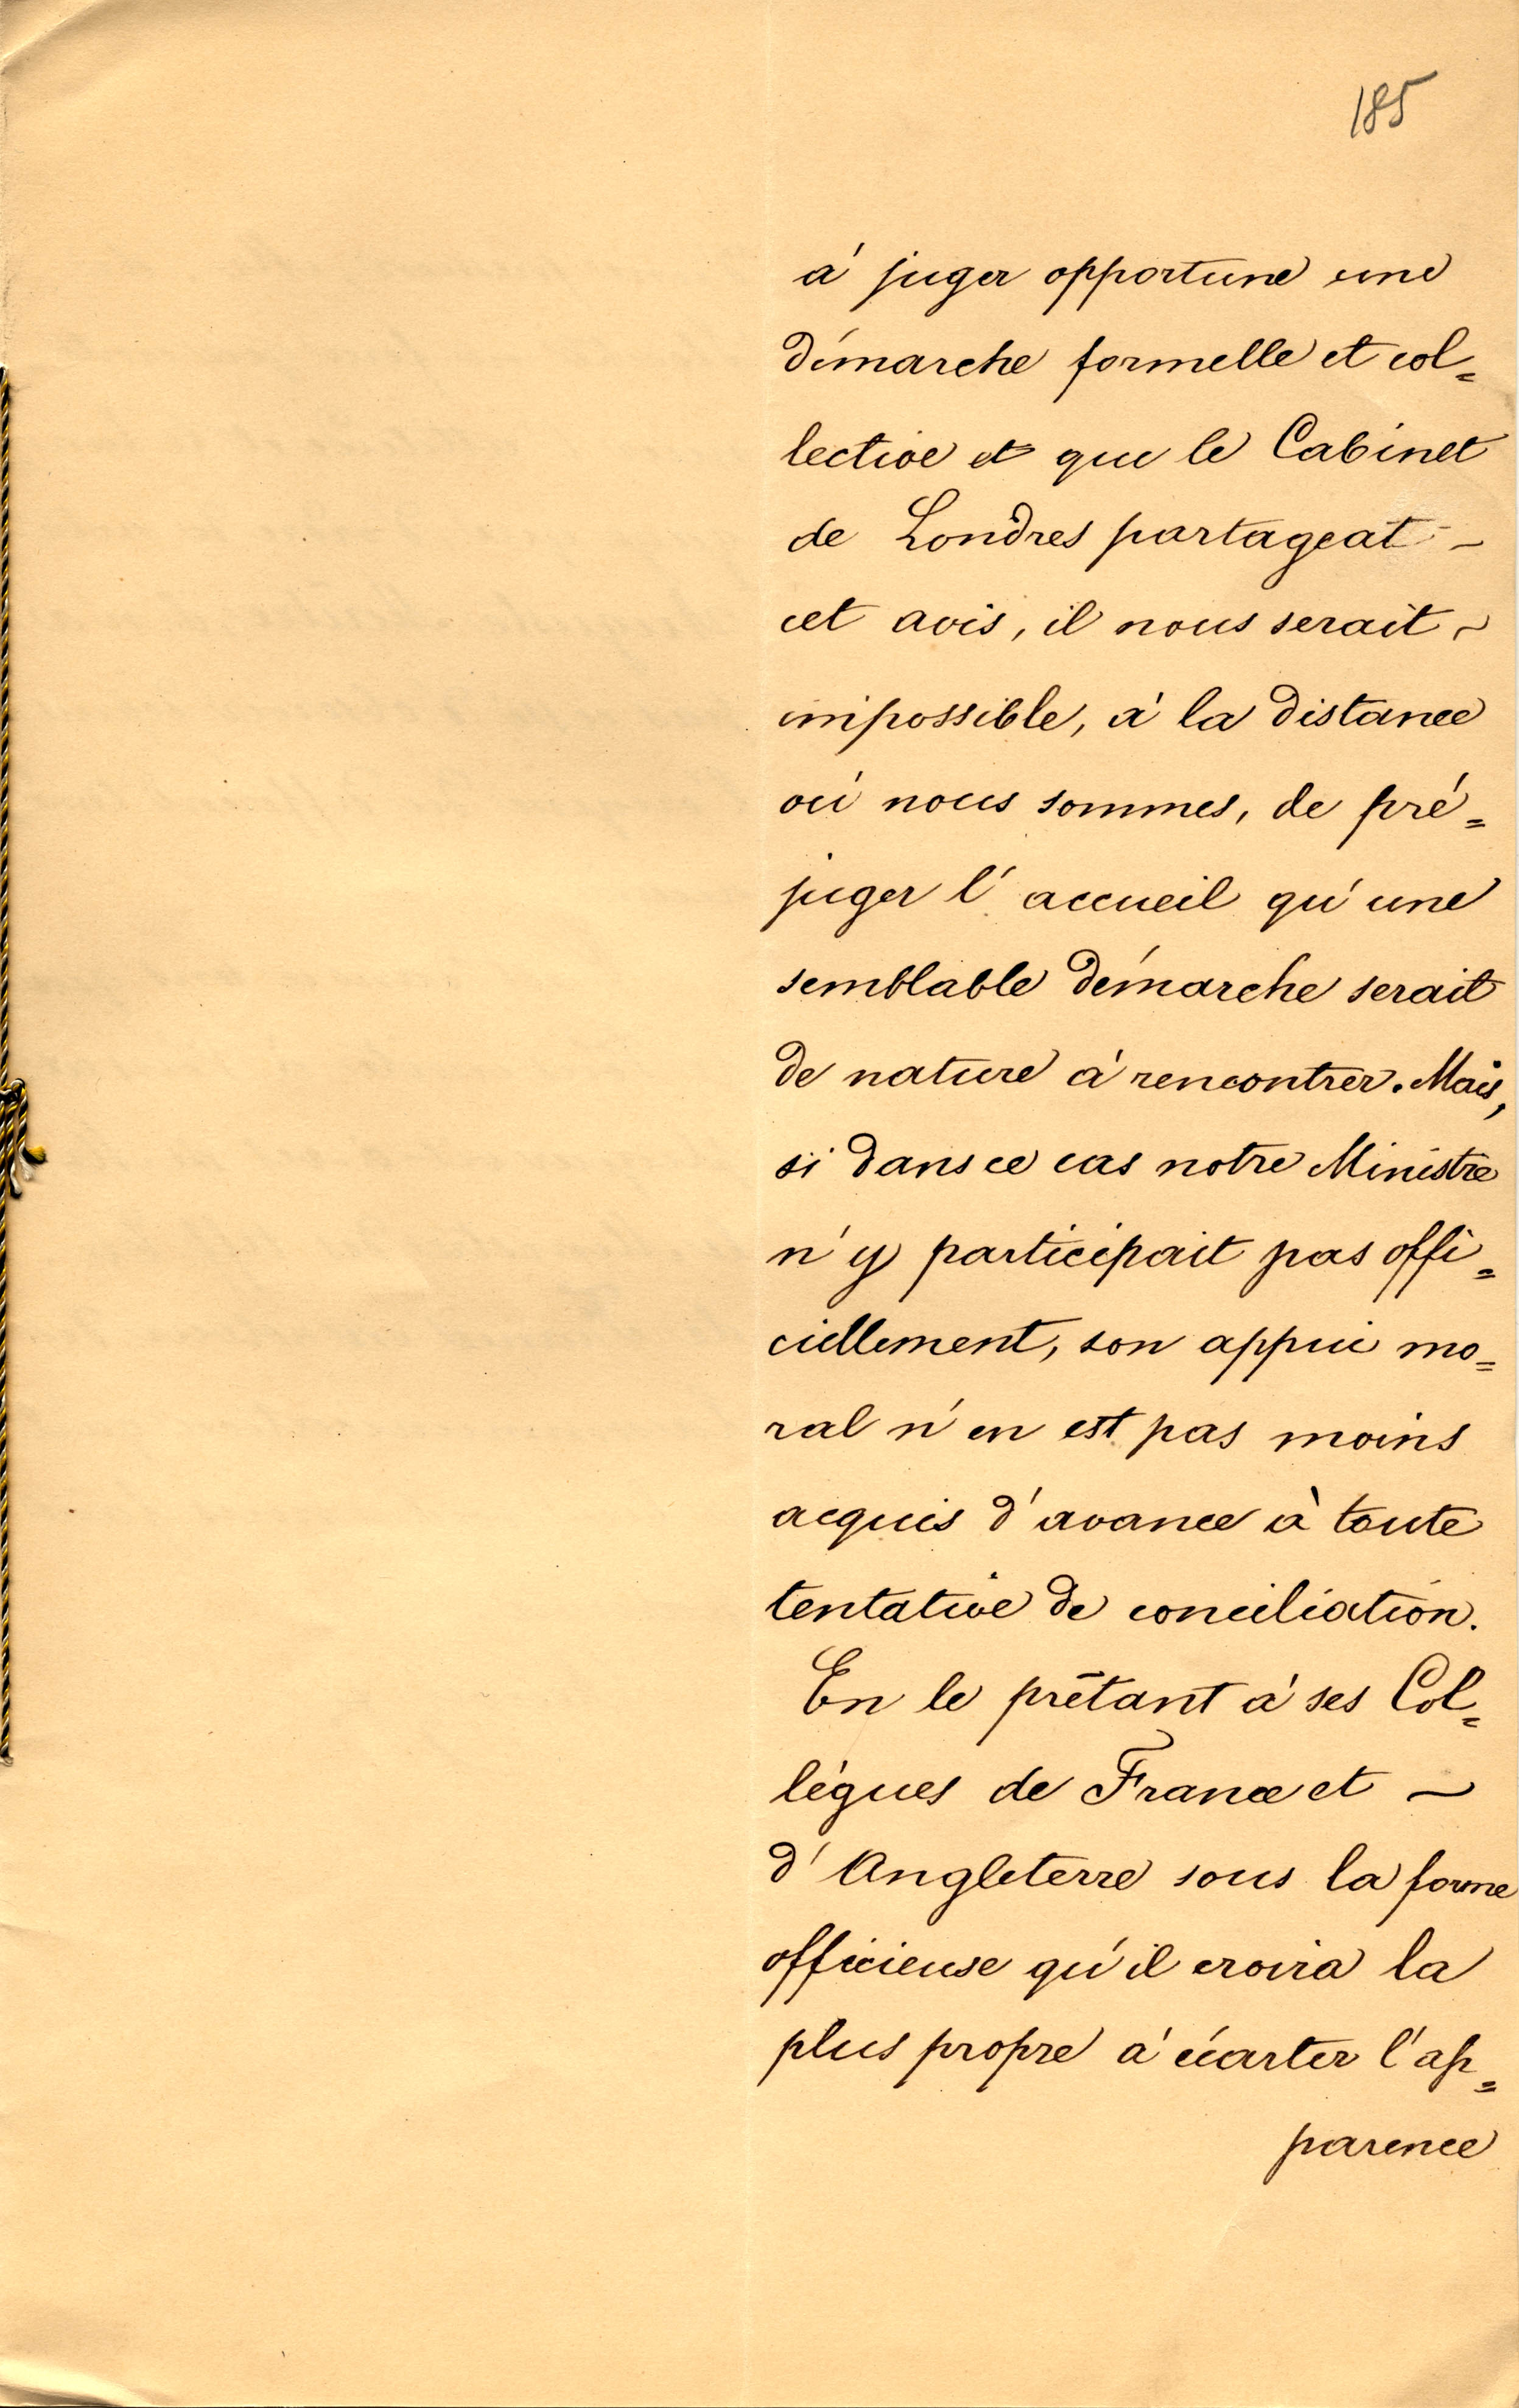 185
à juger opportune une
démarche formelle et col=
lective et que le Cabinet
de Londres partageat –
cet avis, il nous serait ~
impossible, à la distance
où nous sommes, de pré=
juger l'accueil qu'une
semblable démarche serait
de nature à rencontrer. Mais,
si dans ce cas notre Ministre
n'y participait pas offi=
ciellement, son appui mo=
ral n'en est pas moins
acquis d'avance à toute
tentative de conciliation.
En le prêtant à ses Col=
lègues de France et ~
d'Angleterre sous la forme
officieuse qu'il croira la
plus propre à écarter l'ap=
parence